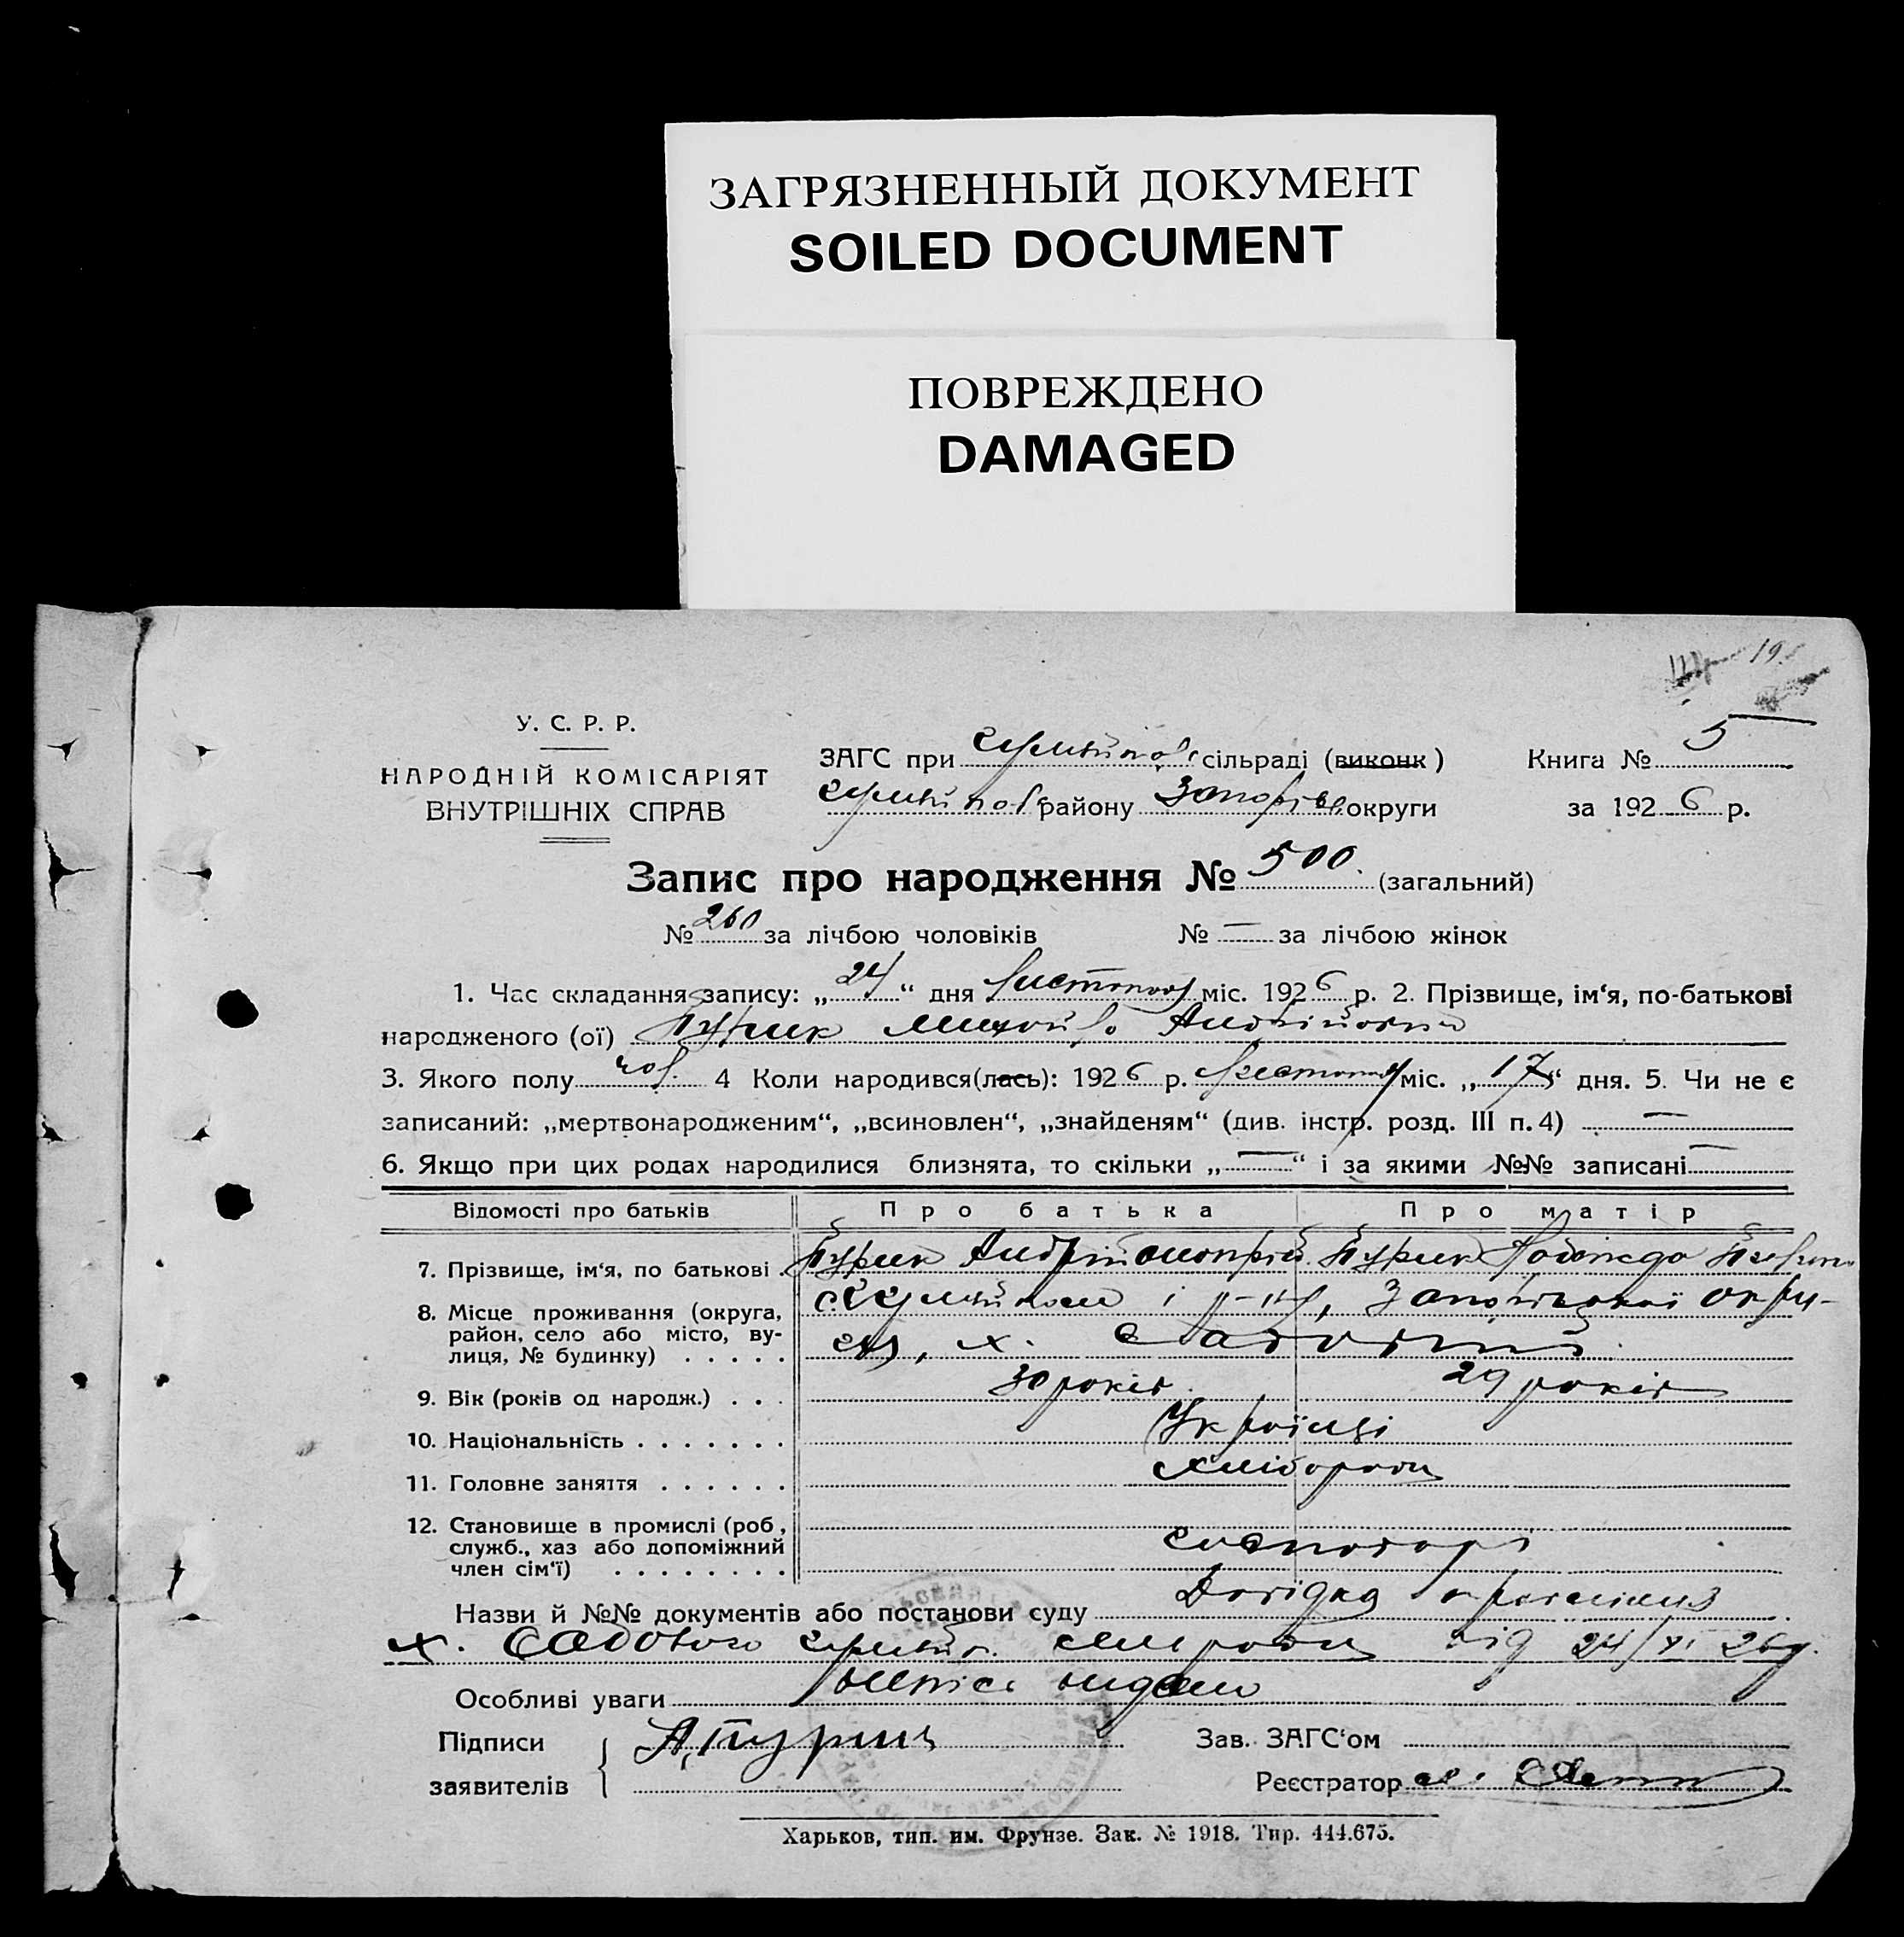 ЗАГРЯЗНЕННЫЙ ДОКУМЕНТ
SOILED DOCUMENT
ПОВРЕЖДЕНО
DAMAGED
19
У. С. Р. Р.
НАРОДНІЙ КОМІСАРІЯТ
ВНУТРІШНІХ СПРАВ
ЗАГС при сільраді (виконк) Книга № 5
району округи за 1926 р.
Запис про народження № 500. (загальний)
№ 260 за лічбою чоловіків № — за лічбою жінок
1. Час складання запису: „24“ дня Листопад міс. 1926 р. 2. Прізвище, ім‘я, по-батькові
народженого (ої) Пурик Михайло Андрійович
3. Якого полу чол. 4 Коли народився(лась): 1926 р. Листопад міс. „17“ дня. 5. Чи не є
записаний: „мертвонародженим“, „всиновлен“, „знайденям“ (див. інстр. розд. III п. 4) —
6. Якщо при цих родах народилися близнята, то скільки „—“ і за якими №№ записані —
Відомості про батьків Про батька Про матір
7. Прізвище, ім‘я, по батькові Пурик Андрій Пурик
8. Місце проживання (округа, і р-ну, Запорізької окру-
район, село або місто, ву- ги, х. Садовий
лиця, № будинку) . . . . .
9. Вік (років од народж.) . . . 30 років 29 років
10. Національність . . . . . . . Українці
11. Головне заняття . . . . . . Хлібороби
12. Становище в промислі (роб,
служб., хаз або допоміжний Господарі
член сім‘ї) . . . . . . . .
Назви й №№ документів або постанови суду Довідка
х. Садового від 24/XI 26р.
Особливі уваги
Підписи А. Пурик Зав. ЗАГС‘ом
заявителів Реєстратор
Харьков, тип. им. Фрунзе. Зак. № 1918. Тир. 444.675.